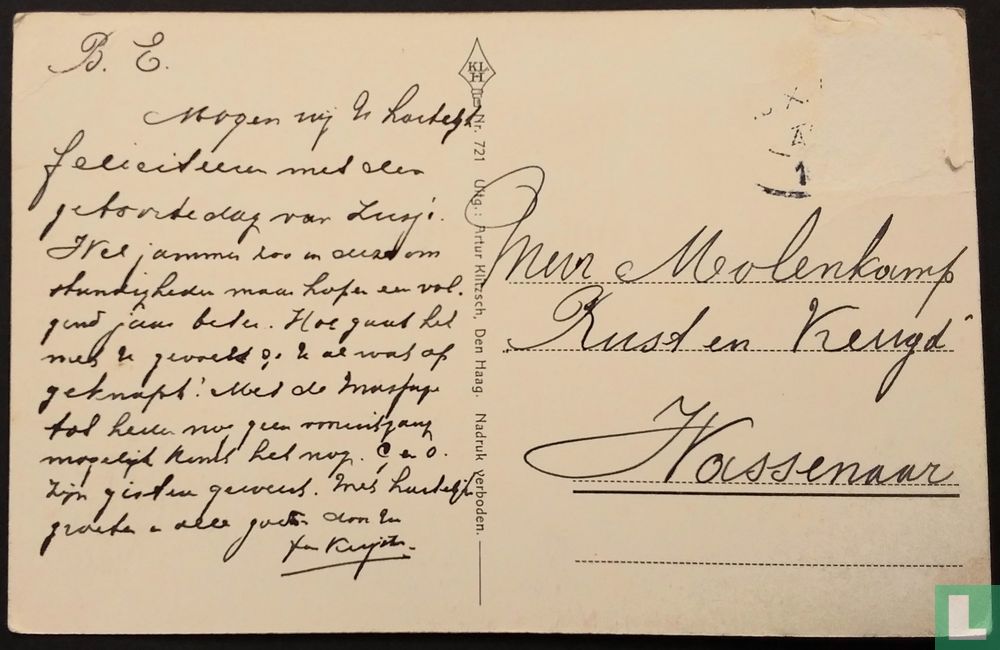 B. E.
Mogen wij U hartelijk
feliciteren met den
geboortedag van Zusje.
Wel jammer zoo in deze om
standigheden maar hopen een vol.
gend jaar beter. Hoe gaat het
met U gevoelt U al wat op
geknapt! Met de Massage
tot heden nog geen vooruitgang
mogelijk komt het nog. C en O.
zijn gisteren geweest. Met hartelijke
groeten en alle goeds door en
KL
H
Nr. 721 Uitg.: Artur Klitzsch, Den Haag. Nadruk verboden.
Mevr Molenkamp
Rust en Vreugd
Wassenaar
L